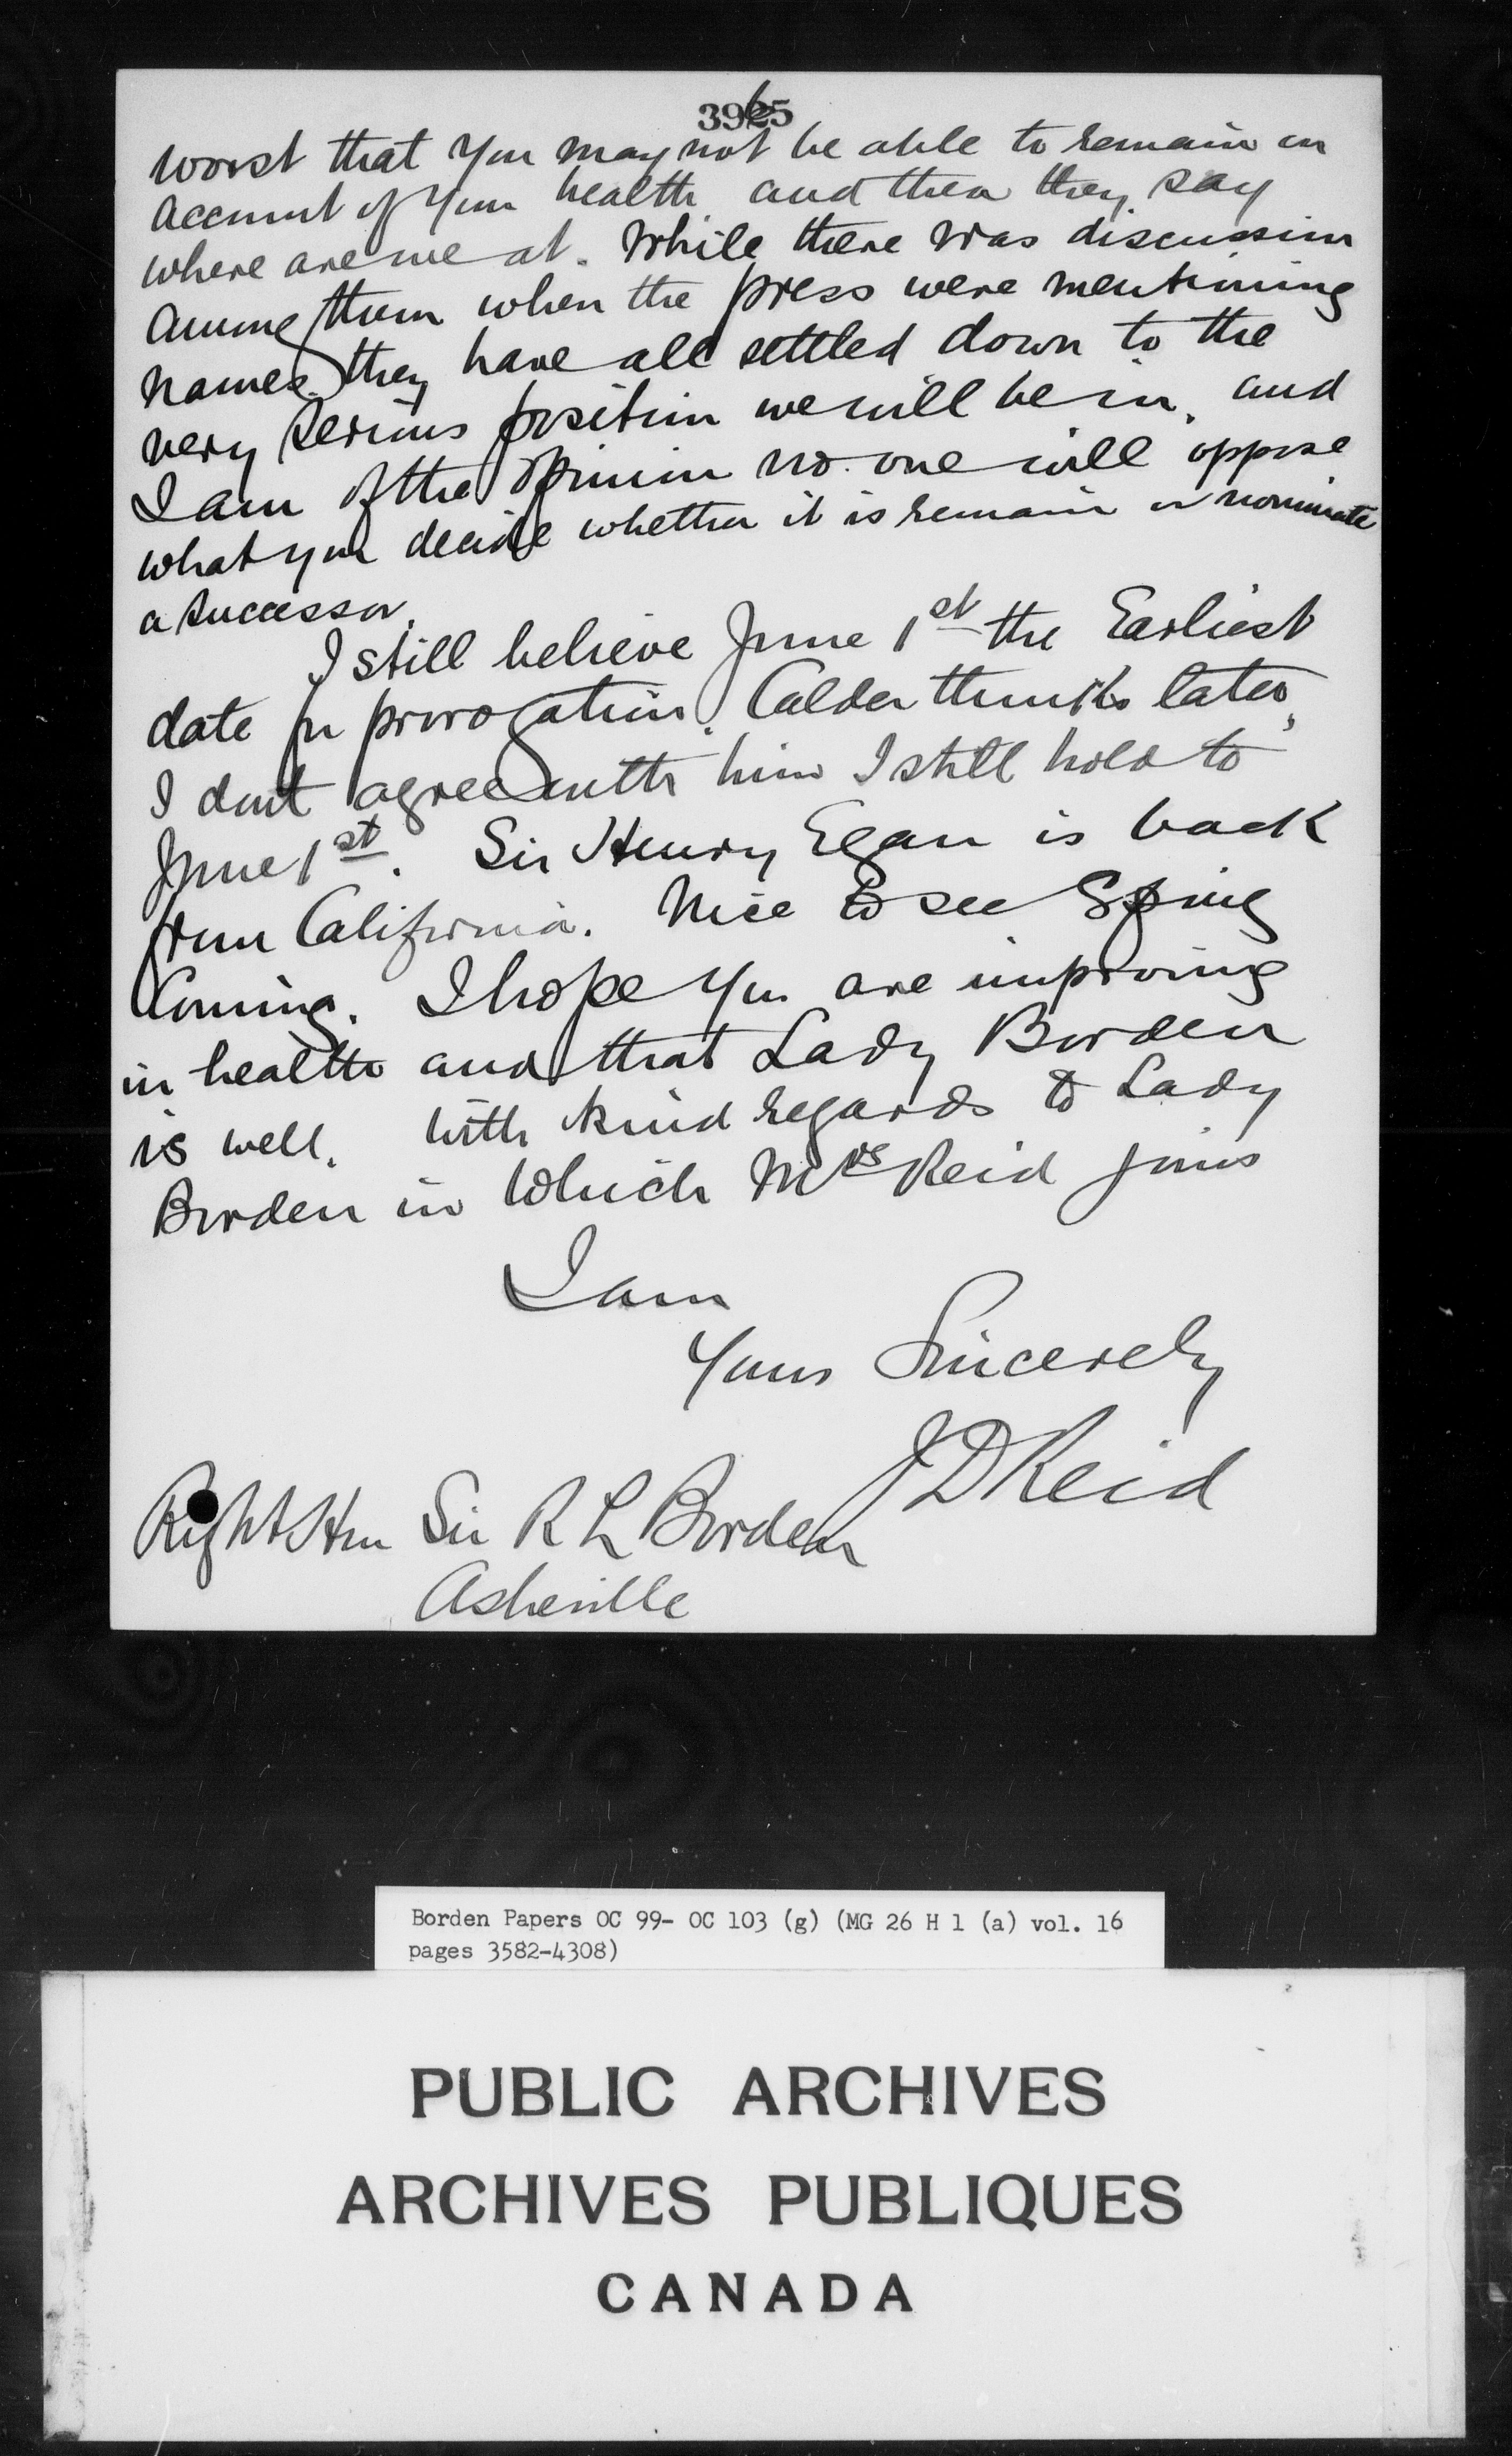 3965
worst that you may not be able to remain on
account of your health and then they say
where are we at. While there was discussion
among them when the press were mentioning
names they have all settled down to the
very serious position we will be in, and
I am of the opinion no one will oppose
what you decide whether it is remain or nominate
a successor.
I still believe June 1st the Earliest
date for prorogation. Calder thinks later,
I dont agree with him I still hold to
June 1st. Sir Henry Egan is back
from California. Nice to see Spring
Coming. I hope you are improving
in health and that Lady Borden
is well. With kind regards to Lady
Borden in which Mrs Reid joins
I am
Yours Sincerely
J D Reid
Right Hon Sir R L Borden
Asheville
Borden Papers OC 99- OC 103 (g) (MG 26 H 1 (a) vol. 16
pages 3582-4308)
PUBLIC ARCHIVES
ARCHIVES PUBLIQUES
CANADA